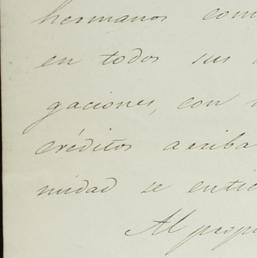 hermanos com
en todos sus
gaciones, con
créditos arriba
midad se entie
Al propi